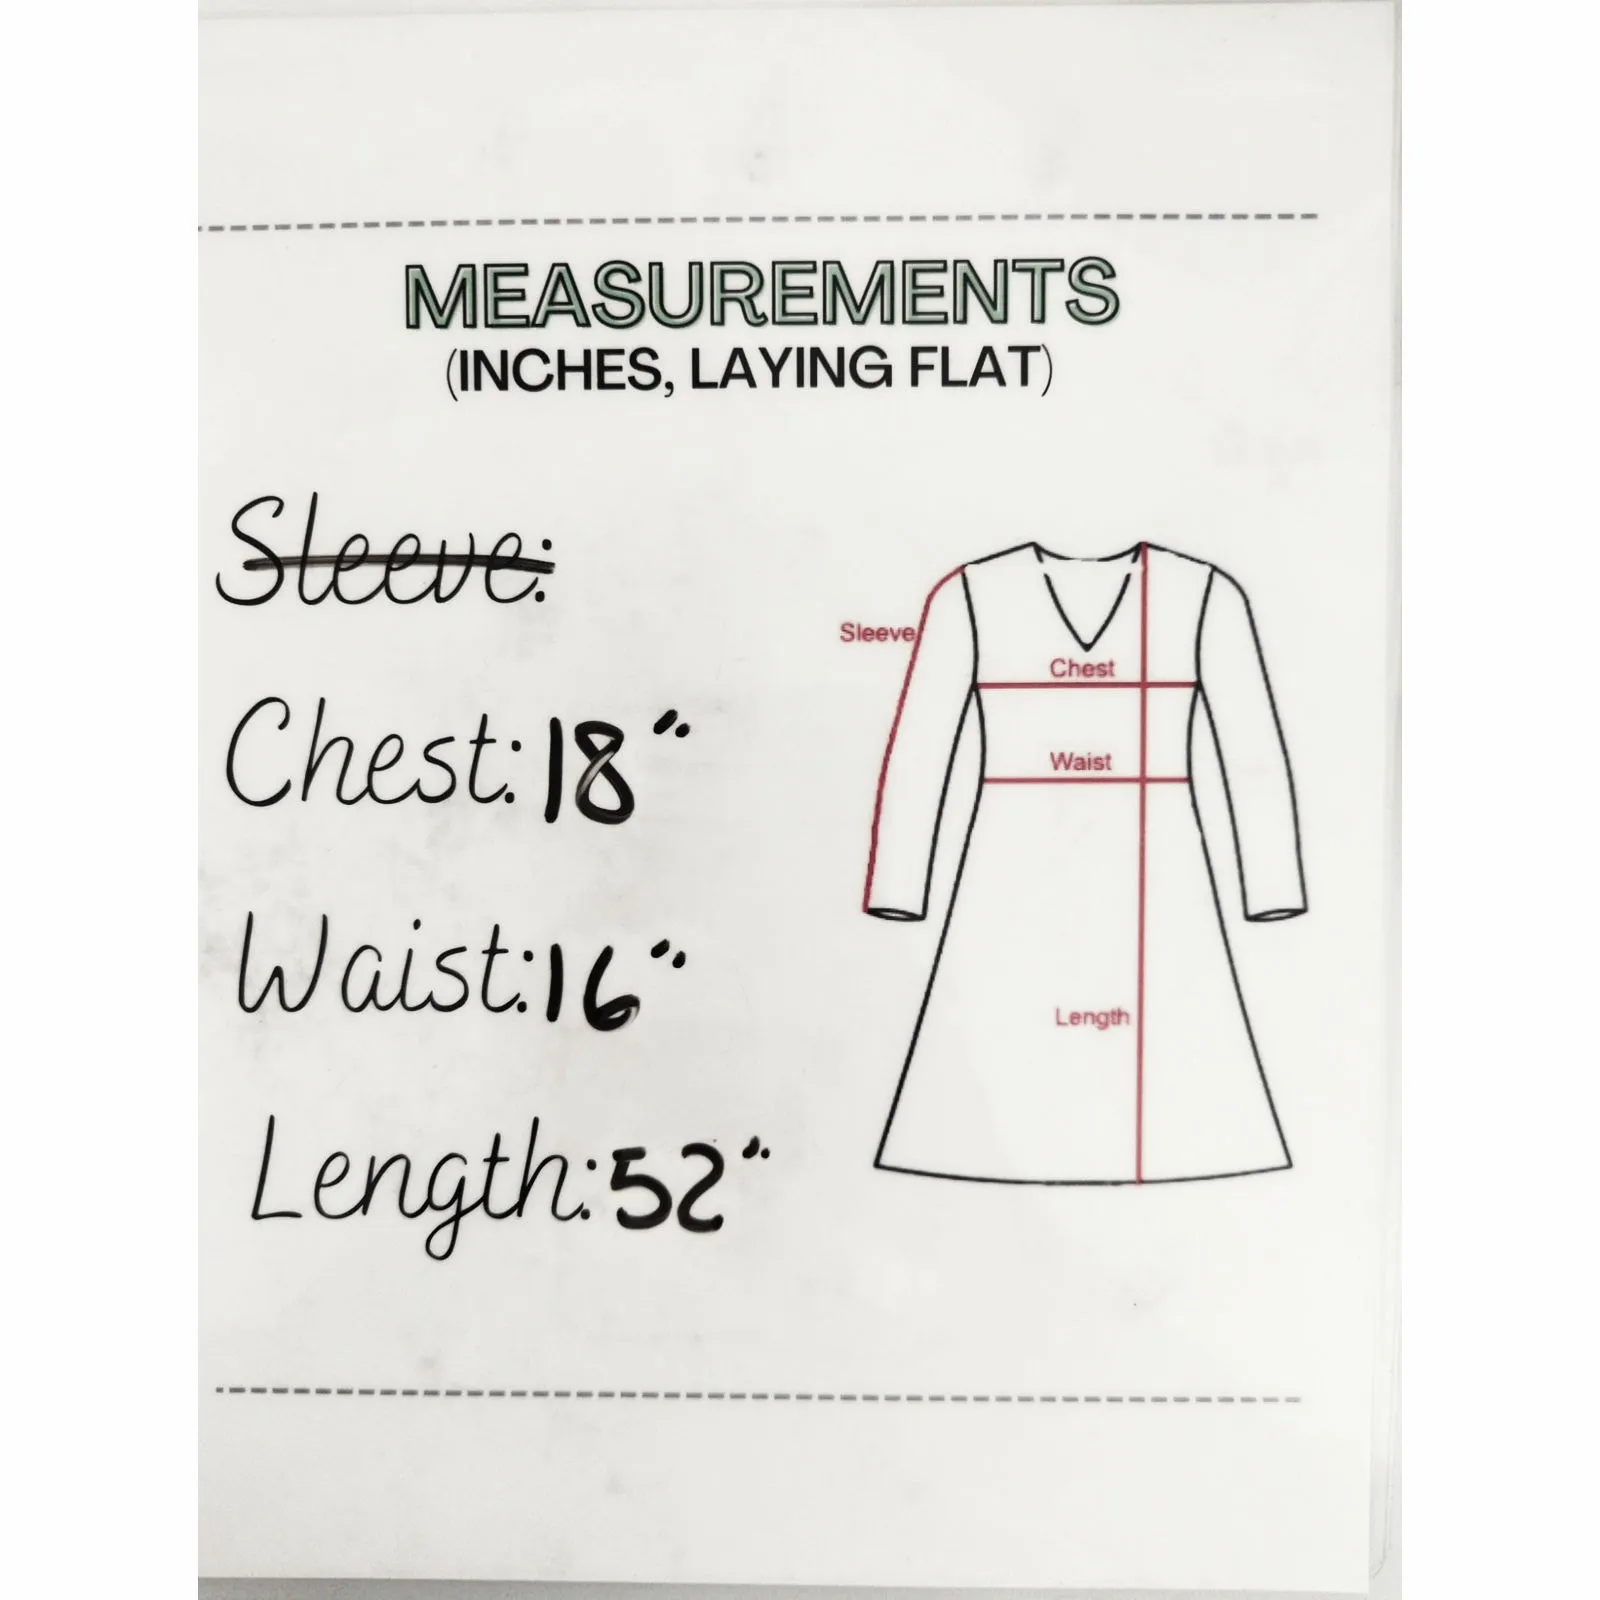 MEASUREMENTS
(INCHES, LAYING FLAT)
Sleeve:
Chest: 18"
Waist: 16"
Length: 52"
Sleeve
Chest
Waist
Length